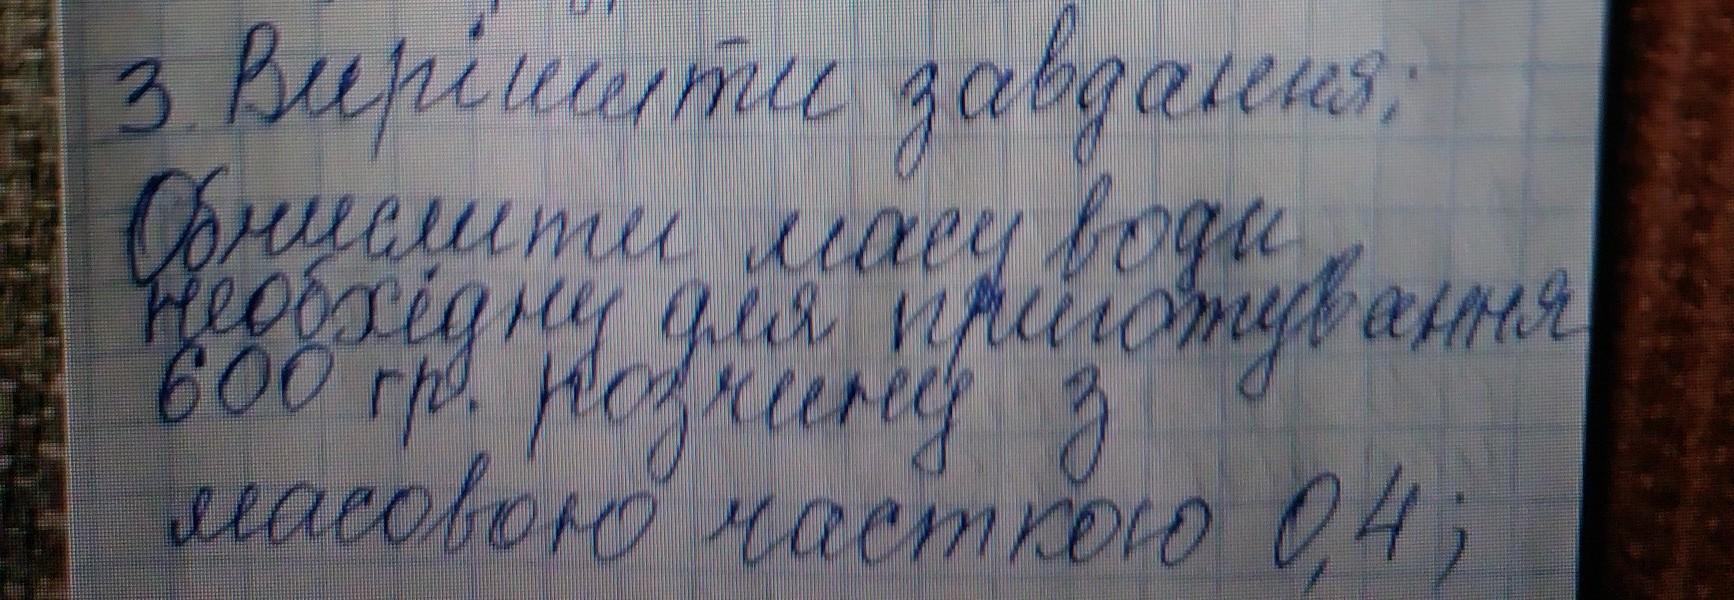 3. Вирішити завдання:
Обчислити масу води,
необхідну для приготування
600 гр. розчину з
масовою часткою 0,4;